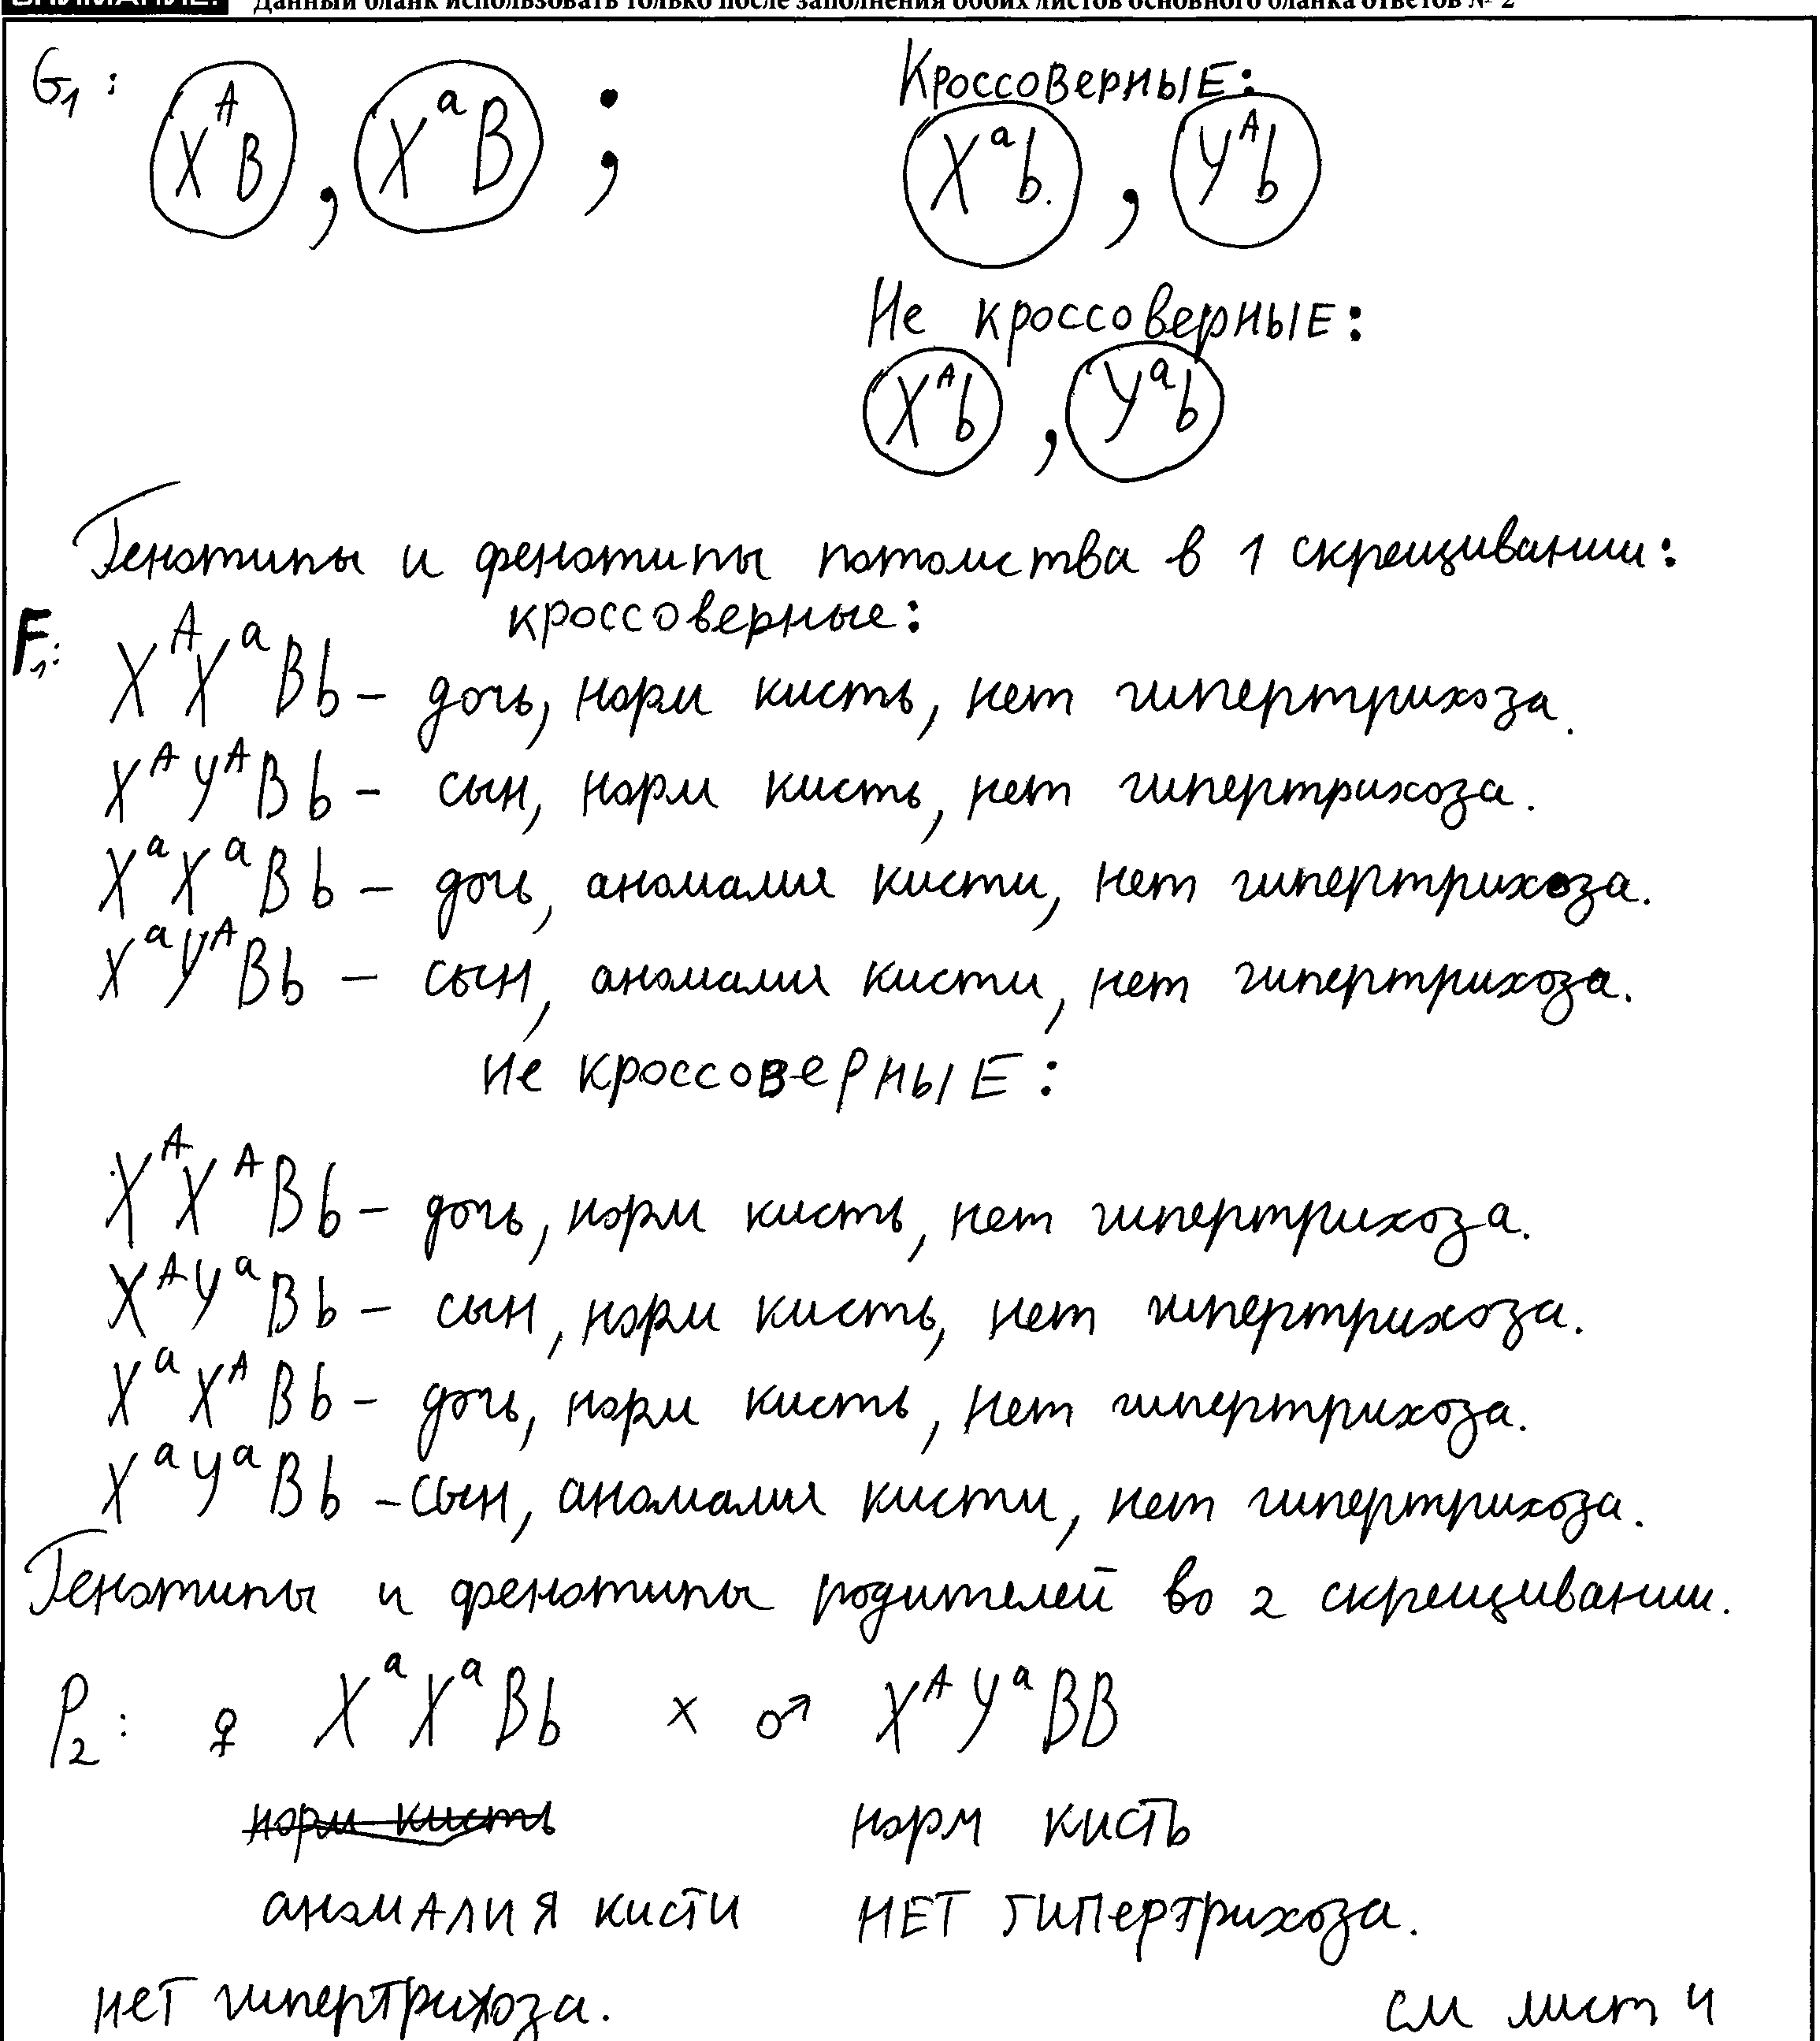 ВНИМАНИЕ! Данный бланк использовать только после заполнения обоих листов основного бланка ответов № 2
G₁: XᴬB, XᵃB; Кроссоверные:
Xᵃb, Yᴬb
Не кроссоверные:
Xᴬb, Yᵃb
Генотипы и фенотипы потомства в 1 скрещивании:
F₁: кроссоверные:
XᴬXᵃBb – дочь, норм кисть, нет гипертрихоза.
XᴬYᴬBb – сын, норм кисть, нет гипертрихоза.
XᵃXᵃBb – дочь, аномалия кисти, нет гипертрихоза.
XᵃYᴬBb – сын, аномалия кисти, нет гипертрихоза.
не кроссоверные:
XᴬXᴬBb – дочь, норм кисть, нет гипертрихоза.
XᴬYᵃBb – сын, норм кисть, нет гипертрихоза.
XᵃXᴬBb – дочь, норм кисть, нет гипертрихоза.
XᵃYᵃBb – сын, аномалия кисти, нет гипертрихоза.
Генотипы и фенотипы родителей во 2 скрещивании.
P₂: ♀ XᵃXᵃBb × ♂ XᴬYᵃBB
норм кисть норм кисть
аномалия кисти нет гипертрихоза.
нет гипертрихоза. см лист 4